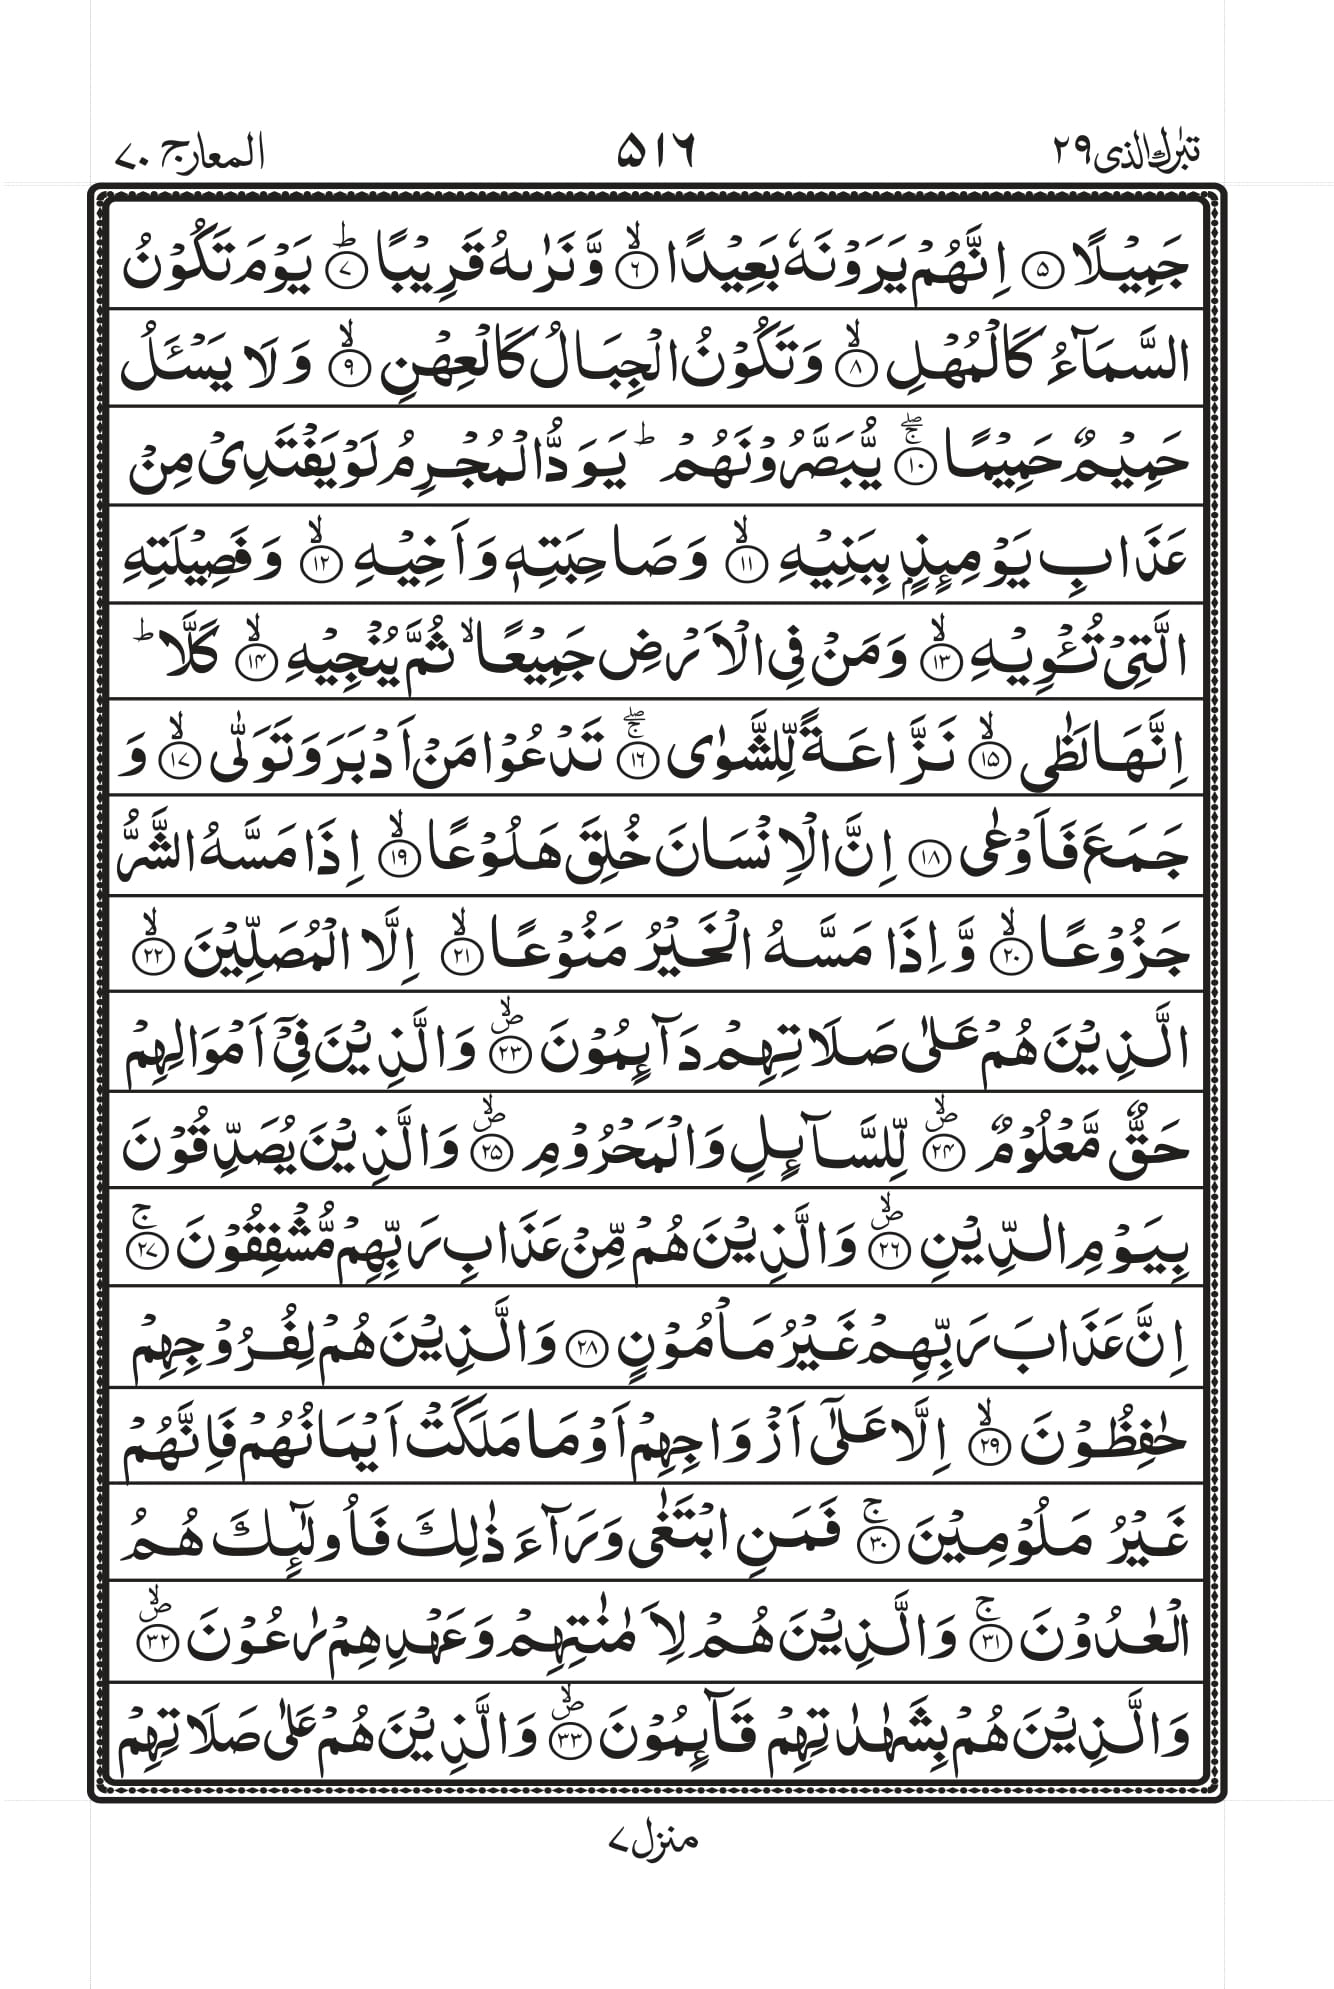 تبٰرك الذی ۲۹
۵۱۶
المعارج ۷۰
جَمِیْلًا ۵ اِنَّهُمْ یَرَوْنَهٗ بَعِیْدًا ۙ۶ وَّ نَرٰىهُ قَرِیْبًا ؕ۷ یَوْمَ تَكُوْنُ
السَّمَآءُ كَالْمُهْلِ ۙ۸ وَ تَكُوْنُ الْجِبَالُ كَالْعِهْنِ ۙ۹ وَ لَا یَسْـَٔلُ
حَمِیْمٌ حَمِیْمًا ۚۖ۱۰ یُّبَصَّرُوْنَهُمْ ؕ یَوَدُّ الْمُجْرِمُ لَوْ یَفْتَدِیْ مِنْ
عَذَابِ یَوْمِىِٕذٍۭ بِبَنِیْهِ ۙ۱۱ وَ صَاحِبَتِهٖ وَ اَخِیْهِ ۙ۱۲ وَ فَصِیْلَتِهِ
الَّتِیْ تُـْٔوِیْهِ ۙ۱۳ وَ مَنْ فِی الْاَرْضِ جَمِیْعًا ۙ ثُمَّ یُنْجِیْهِ ۙ۱۴ كَلَّا ؕ
اِنَّهَا لَظٰی ۙ۱۵ نَزَّاعَةً لِّلشَّوٰی ۚۖ۱۶ تَدْعُوْا مَنْ اَدْبَرَ وَ تَوَلّٰی ۙ۱۷ وَ
جَمَعَ فَاَوْعٰی ۱۸ اِنَّ الْاِنْسَانَ خُلِقَ هَلُوْعًا ۙ۱۹ اِذَا مَسَّهُ الشَّرُّ
جَزُوْعًا ۙ۲۰ وَّ اِذَا مَسَّهُ الْخَیْرُ مَنُوْعًا ۙ۲۱ اِلَّا الْمُصَلِّیْنَ ۙ۲۲
الَّذِیْنَ هُمْ عَلٰی صَلَاتِهِمْ دَآىِٕمُوْنَ ۪ۙ۲۳ وَ الَّذِیْنَ فِیْۤ اَمْوَالِهِمْ
حَقٌّ مَّعْلُوْمٌ ۪ۙ۲۴ لِّلسَّآىِٕلِ وَ الْمَحْرُوْمِ ۪ۙ۲۵ وَ الَّذِیْنَ یُصَدِّقُوْنَ
بِیَوْمِ الدِّیْنِ ۪ۙ۲۶ وَ الَّذِیْنَ هُمْ مِّنْ عَذَابِ رَبِّهِمْ مُّشْفِقُوْنَ ۚ۲۷
اِنَّ عَذَابَ رَبِّهِمْ غَیْرُ مَاْمُوْنٍ ۲۸ وَ الَّذِیْنَ هُمْ لِفُرُوْجِهِمْ
حٰفِظُوْنَ ۙ۲۹ اِلَّا عَلٰۤی اَزْوَاجِهِمْ اَوْ مَا مَلَكَتْ اَیْمَانُهُمْ فَاِنَّهُمْ
غَیْرُ مَلُوْمِیْنَ ۚ۳۰ فَمَنِ ابْتَغٰی وَرَآءَ ذٰلِكَ فَاُولٰٓىِٕكَ هُمُ
الْعٰدُوْنَ ۚ۳۱ وَ الَّذِیْنَ هُمْ لِاَمٰنٰتِهِمْ وَ عَهْدِهِمْ رٰعُوْنَ ۪ۙ۳۲
وَ الَّذِیْنَ هُمْ بِشَهٰدٰتِهِمْ قَآىِٕمُوْنَ ۪ۙ۳۳ وَ الَّذِیْنَ هُمْ عَلٰی صَلَاتِهِمْ
منزل ۷